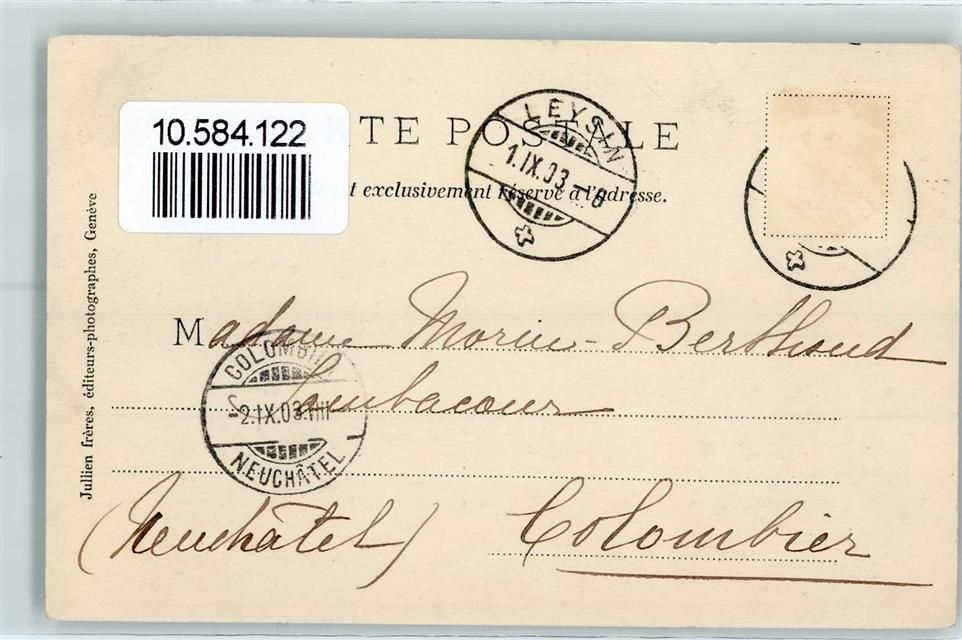 10.584.122
RTE POSTALE
t exclusivement réservé à l'adresse.
LEYSIN
1.IX.03.-8
Jullien frères, éditeurs-photographes, Genève
Madame Morin-Berthoud
Sombacour
COLOMBIER
-2.IX.03.VIII
NEUCHÂTEL
(Neuchâtel) Colombier